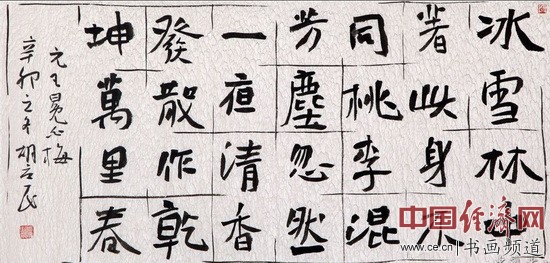 冰雪林中
著此身不
同桃李混
芳塵忽然
一夜清香
發散作乾
坤萬里春
元王冕白梅
辛卯之冬胡立民
中国经济网
www.ce.cn 书画频道